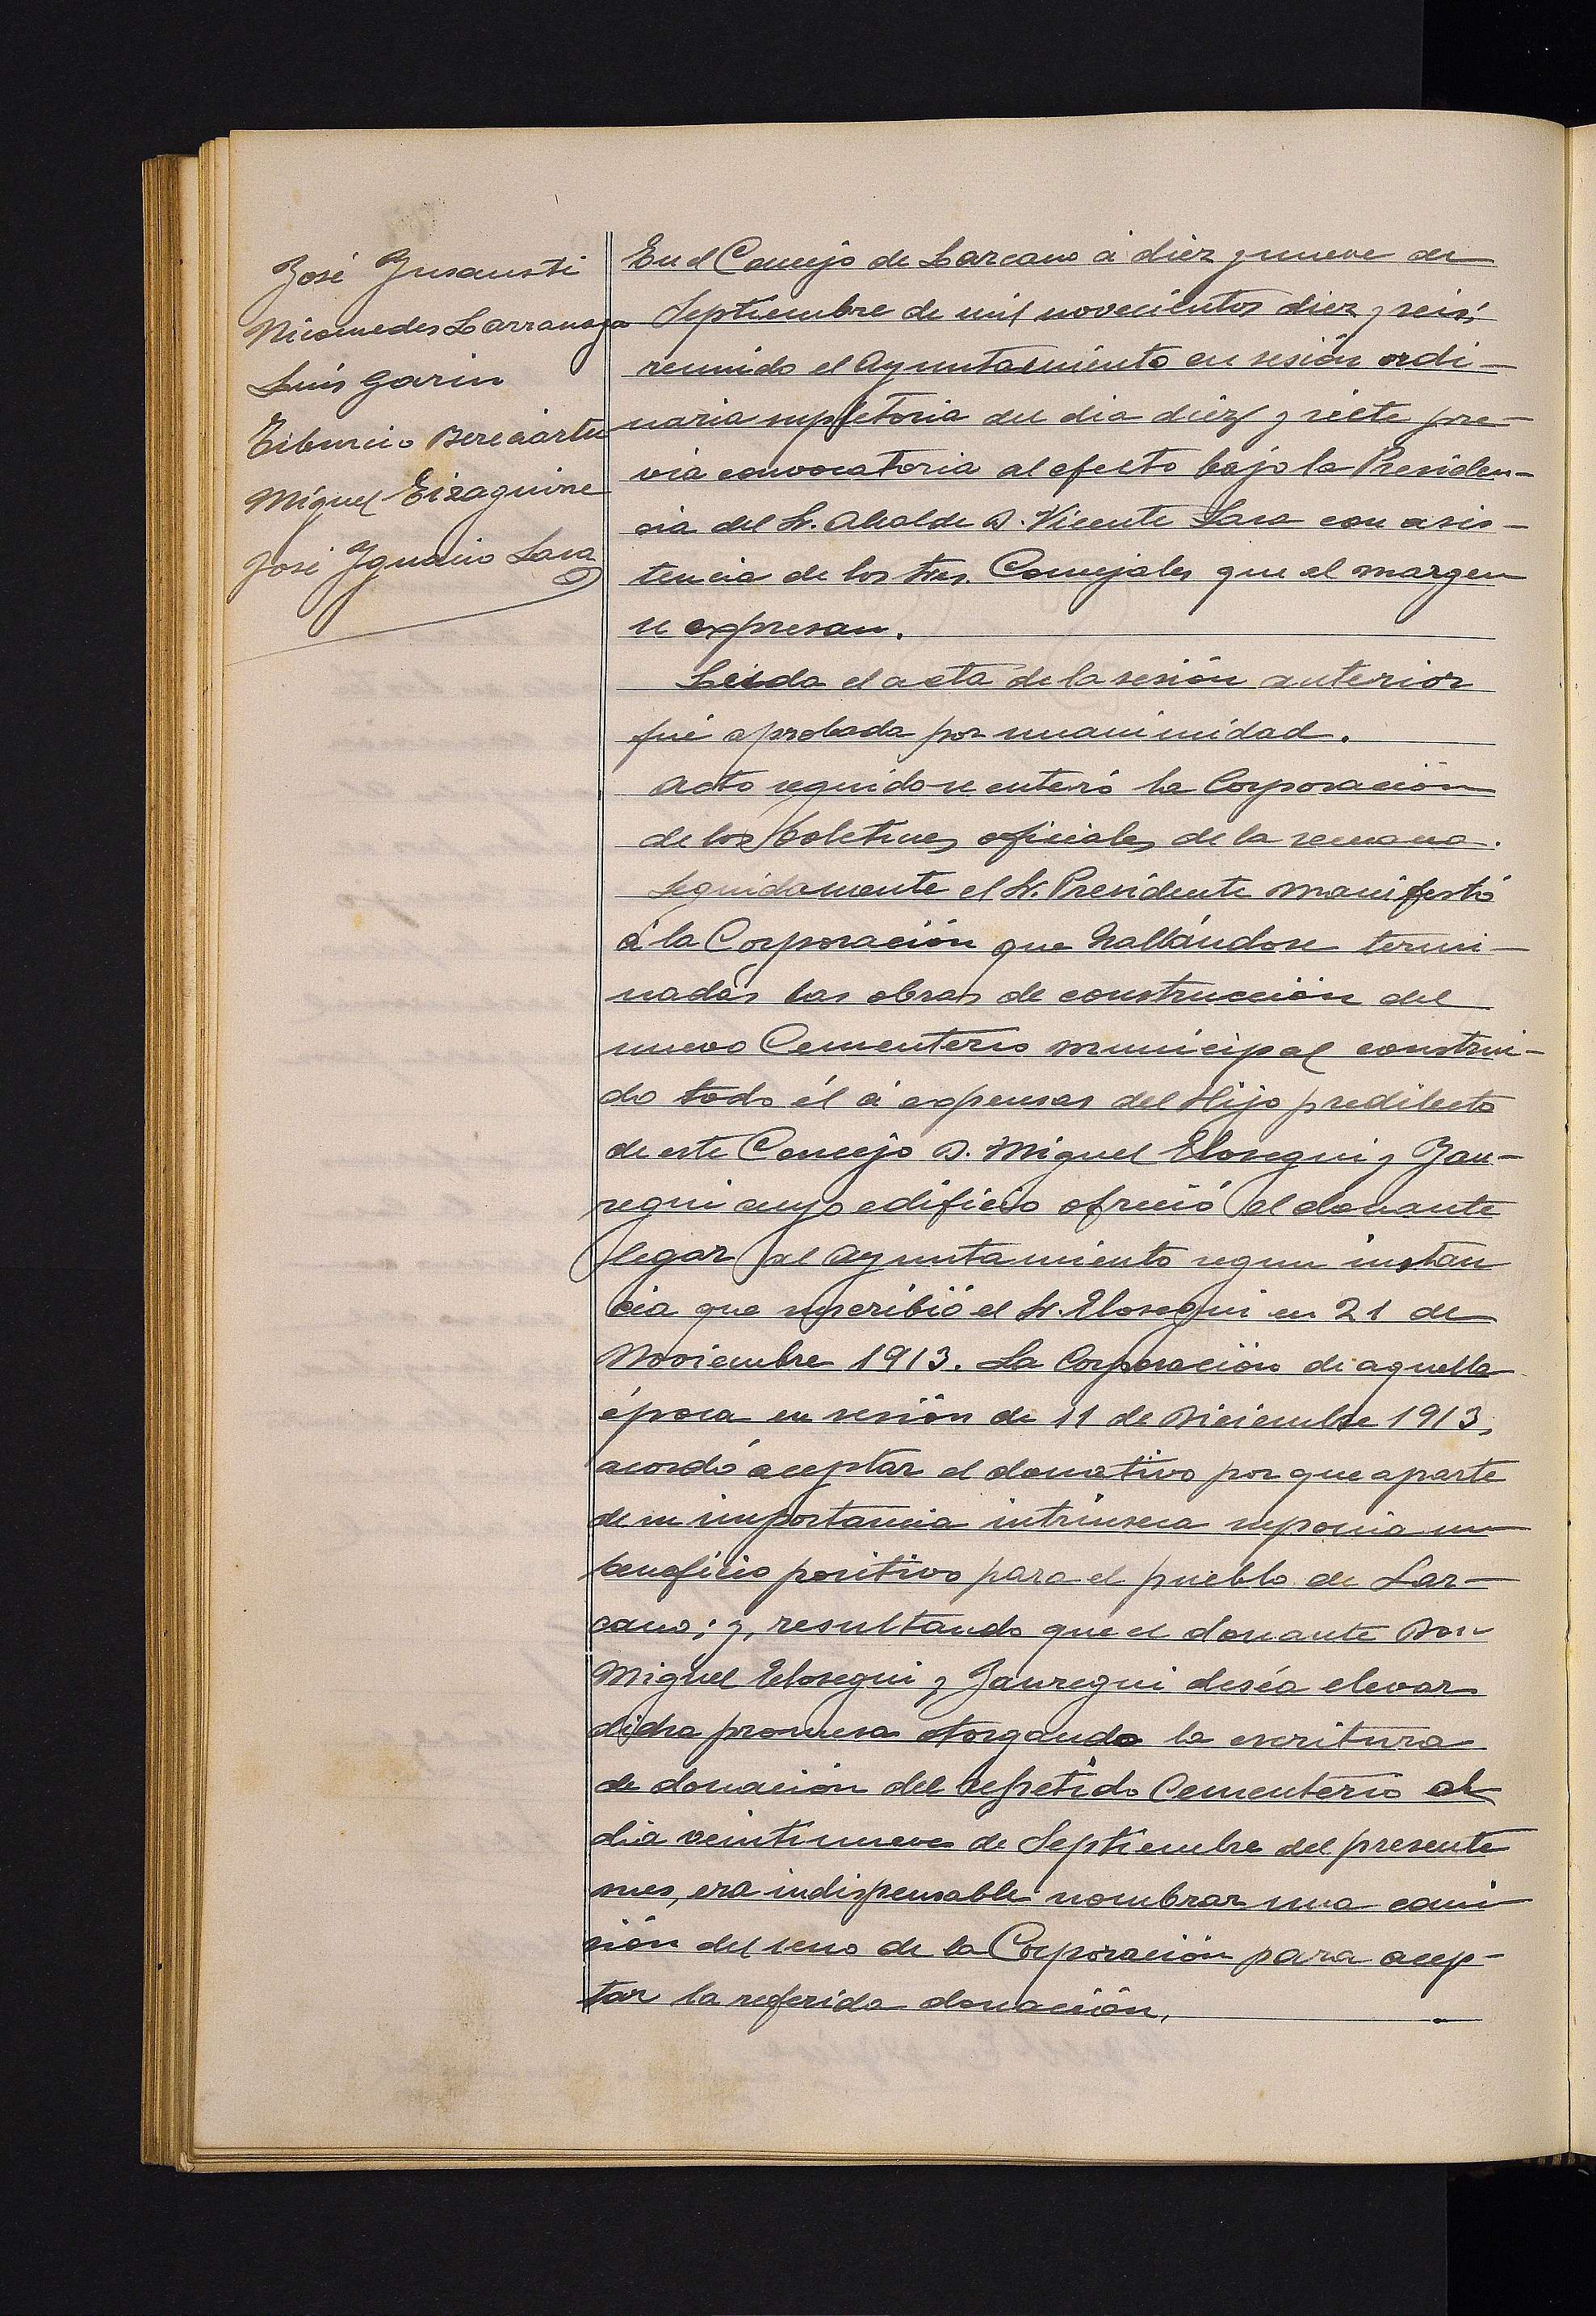 José Insausti
Nicomedes Larranaga
Luis Garin
Tiburcio Bereciartu
Miguel Eizaguirre
José Ignacio Lasa
En el Concejo de Lazcano á diez y nueve de
Septiembre de mil novecientos diez y seis;
reunido el Ayuntamiento en sesión ordi-
naria supletoria del dia diez y siete pre-
via convocatoria al efecto bajo la Presiden-
cia del Sr. Alcalde D. Vicente Lasa con asis-
tencia de los Sres. Concejales que al margen
se expresan.
Leida el acta de la sesión anterior
fué aprobada por unanimidad.
Acto seguido se enteró la Corporación
de los boletines oficiales de la semana.
Seguidamente el Sr. Presidente manifestó
á la Corporación que hallándose termi-
nadas las obras de construcción del
nuevo Cementerio municipal construi-
do todo él á expensas del Hijo predilecto
de este Concejo D. Miguel Elosegui y Jau-
regui cuyo edificio ofreció el donante
legar al Ayuntamiento segun instan
cia que suscribió el Sr. Elosegui en 21 de
Noviembre 1913. La Corporación de aquella
época en sesión de 11 de Diciembre 1913,
acordó aceptar el donativo por que aparte
de su importancia intrínseca suponia un
beneficio positivo para el pueblo de Laz-
cano; y, resultando que el donante Don
Miguel Elosegui y Jauregui deséa elevar
dicha promesa otorgando la escritura
de donación del repetido Cementerio el
dia veintinueve de Septiembre del presente
mes, era indispensable nombrar una comi
sión del seno de la Corporación para acep-
tar la referida donación.